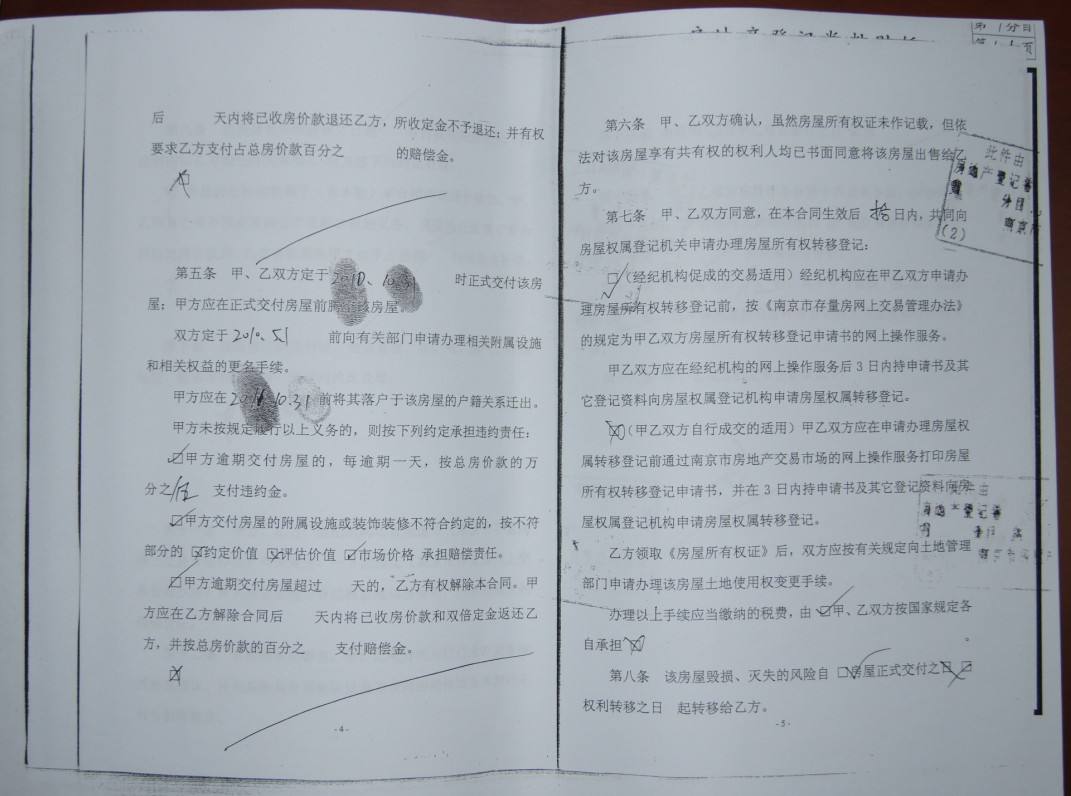 后 天内将已收房价款退还乙方，所收定金不予退还；并有权
要求乙方支付占总房价款百分之 的赔偿金。
第五条 甲、乙双方定于2010、10.31 时正式交付该房
屋；甲方应在正式交付房屋前腾空该房屋。
双方定于 前向有关部门申请办理相关附属设施
和相关权益的更名手续。
甲方应在 10.31 前将其落户于该房屋的户籍关系迁出。
甲方未按规定履行以上义务的，则按下列约定承担违约责任：
☑甲方逾期交付房屋的，每逾期一天，按总房价款的万
分之 支付违约金。
☑甲方交付房屋的附属设施或装饰装修不符合约定的，按不符
部分的 ☑约定价值 ☑评估价值 ☑市场价格 承担赔偿责任。
☑甲方逾期交付房屋超过 天的，乙方有权解除本合同。甲
方应在乙方解除合同后 天内将已收房价款和双倍定金返还乙
方，并按总房价款的百分之 支付赔偿金。
-4-
第1分目
页
第六条 甲、乙双方确认，虽然房屋所有权证未作记载，但依
法对该房屋享有共有权的权利人均已书面同意将该房屋出售给乙
方。
第七条 甲、乙双方同意，在本合同生效后 拾 日内，共同向
房屋权属登记机关申请办理房屋所有权转移登记：
☑（经纪机构促成的交易适用）经纪机构应在甲乙双方申请办
理房屋所有权转移登记前，按《南京市存量房网上交易管理办法》
的规定为甲乙双方房屋所有权转移登记申请书的网上操作服务。
甲乙双方应在经纪机构的网上操作服务后3日内持申请书及其
它登记资料向房屋权属登记机构申请房屋权属转移登记。
☒（甲乙双方自行成交的适用）甲乙双方应在申请办理房屋权
属转移登记前通过南京市房地产交易市场的网上操作服务打印房屋
所有权转移登记申请书，并在3日内持申请书及其它登记资料向房
屋权属登记机构申请房屋权属转移登记。
乙方领取《房屋所有权证》后，双方应按有关规定向土地管理
部门申请办理该房屋土地使用权变更手续。
办理以上手续应当缴纳的税费，由 ☑甲、乙双方按国家规定各
自承担 ☒ 。
第八条 该房屋毁损、灭失的风险自 ☑房屋正式交付之日 ☒
权利转移之日 起转移给乙方。
-5-
此件由
产登记
分目
南京
(2)